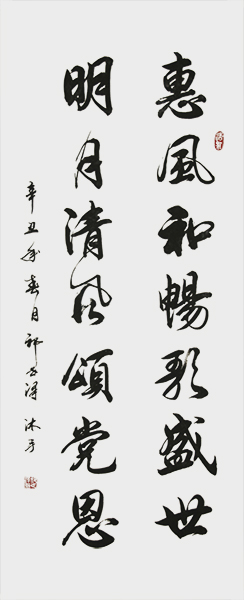 惠風和暢歌盛世
明月清风頌党恩
辛丑年春月祁书泽沐手